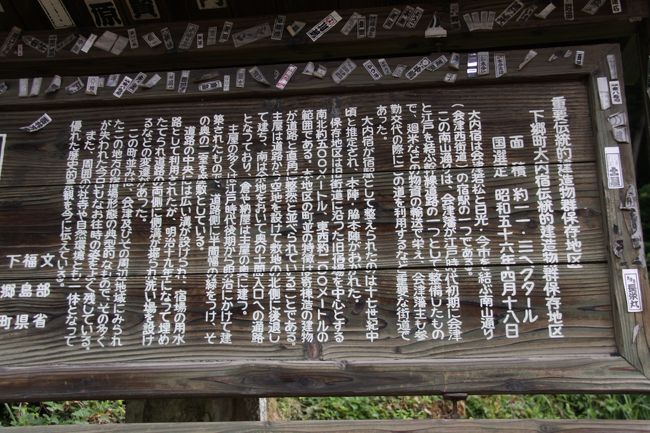 重要伝統的建造物群保存地区
下郷町大内宿伝統的建造物群保存地区
面積 約一一・三ヘクタール
国選定 昭和五十六年四月十八日
大内宿は会津若松と日光・今市を結ぶ南山通り
(会津西街道)の宿駅の一つであった。
この南山通りは、会津藩が江戸時代初期に会津
と江戸とを結ぶ幹線道路の一つとして整備したもの
で、廻米などの物資の輸送で栄え、会津藩主も参
勤交代の際にこの道を利用するなど重要な街道で
あった。
大内宿が宿駅として整えられたのは十七世紀中
頃と推定され、本陣・脇本陣がおかれた。
保存地区は旧街道に沿った旧宿場を中心とする
南北約五〇〇メートル、東西約二〇〇メートルの
範囲である。本地区の町並の特徴は寄棟造の建物
が道路と直角に整然と並べられていることである。
主屋は道路より空地を設け敷地の北側に後退し
て建つ。南側空地を
主屋の多くは江戸時代後期から明治にかけて建
築されたもので、道路側に半間幅の縁をつけ、そ
の奥の一室を座敷としている。
道路の中央には広い溝が設けられ、宿場の用水
路として利用されたが、明治十九年になって埋め
たてられ道路の両側に側溝が掘られ洗い場を設け
るなどの変遷があった。
この町並みは、会津及びその周辺地域にみられ
たこの地方の宿場形態の典型的なもので、その多く
が失われた今日もなお旧時の姿をよく残している。
また、周囲の社寺や自然環境とも一体となって
優れた歴史的景観を今に伝えている。
文部省
福島県
下郷町
長栄丸